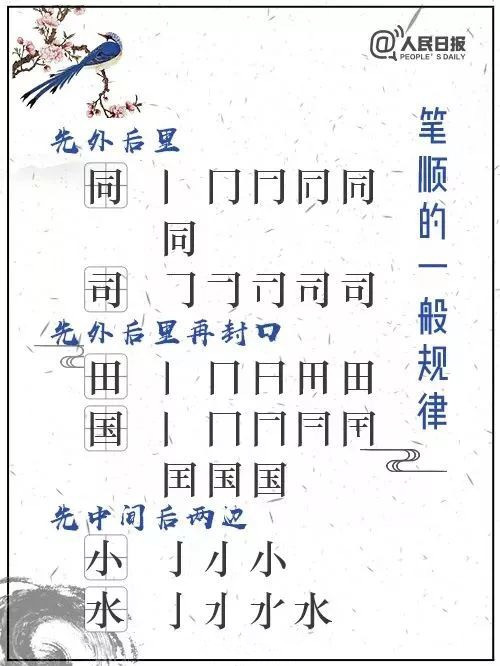 @人民日报
PEOPLE'S DAILY
笔顺的一般规律
先外后里
同 丨 冂 同
同
司 𠃌 司
先外后里再封口
田 丨 冂 田
国 丨 冂
国
先中间后两边
小 亅 小
水 亅 水